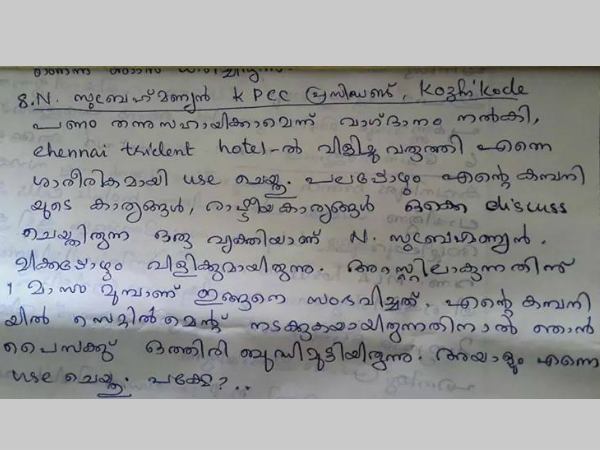 8. N. സുബ്രഹ്മണ്യൻ KPCC പ്രസിഡണ്ട്, Kozhikode
പണം തന്നു സഹായിക്കാമെന്ന് വാഗ്ദാനം നൽകി,
chennai trident hotel-ൽ വിളിച്ചു വരുത്തി എന്നെ
ശാരീരികമായി use ചെയ്തു. പലപ്പോഴും എന്റെ കമ്പനി
യുടെ കാര്യങ്ങൾ, രാഷ്ട്രീയകാര്യങ്ങൾ ഒക്കെ discuss
ചെയ്തിരുന്ന ഒരു വ്യക്തിയാണ് N. സുബ്രഹ്മണ്യൻ.
മിക്കപ്പോഴും വിളിക്കുമായിരുന്നു. അറസ്റ്റിലാകുന്നതിന്
1 മാസം മുമ്പാണ് ഇങ്ങനെ സംഭവിച്ചത്. എന്റെ കമ്പനി
യിൽ സെറ്റിൽമെന്റ് നടക്കുകയായിരുന്നതിനാൽ ഞാൻ
പൈസക്ക് ഒത്തിരി ബുദ്ധിമുട്ടിയിരുന്നു. അയാളും എന്നെ
use ചെയ്തു. പക്ഷേ?..